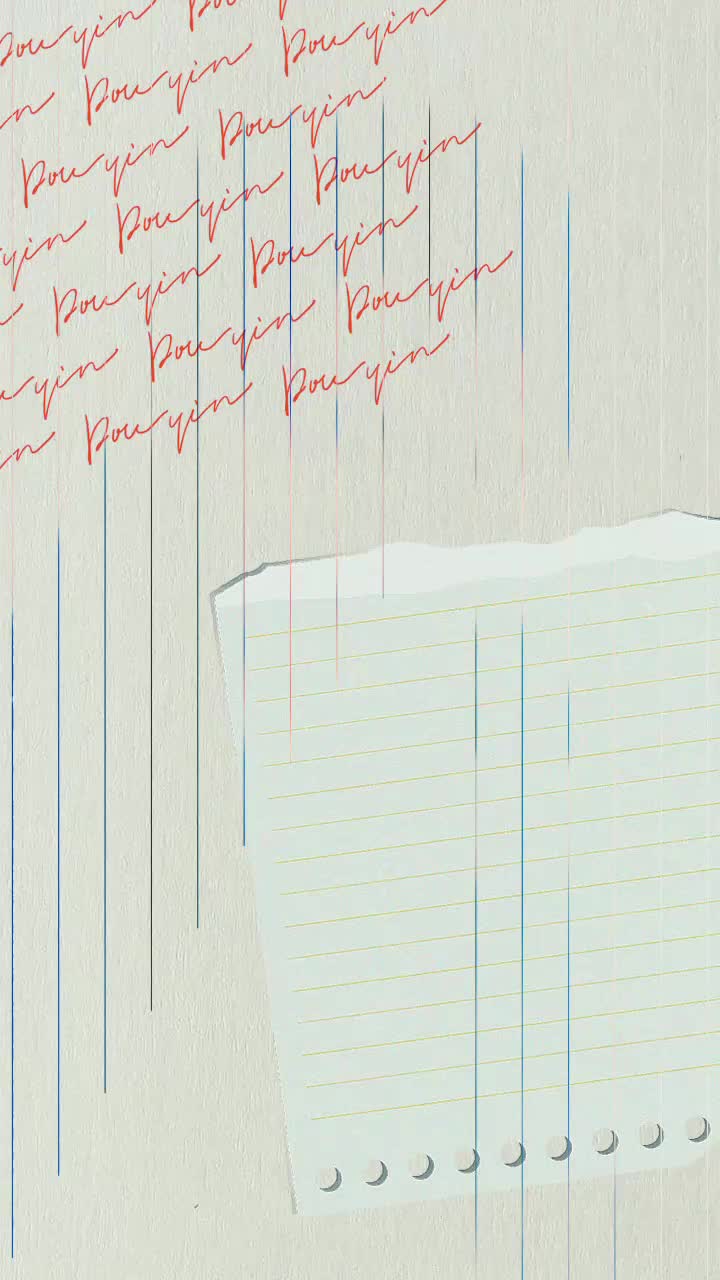 Douyin Douy
in Douyin Douyin
Douyin Douyin
yin Douyin Douyin
Douyin Douyin
uyin Douyin Douyin
in Douyin Douyin